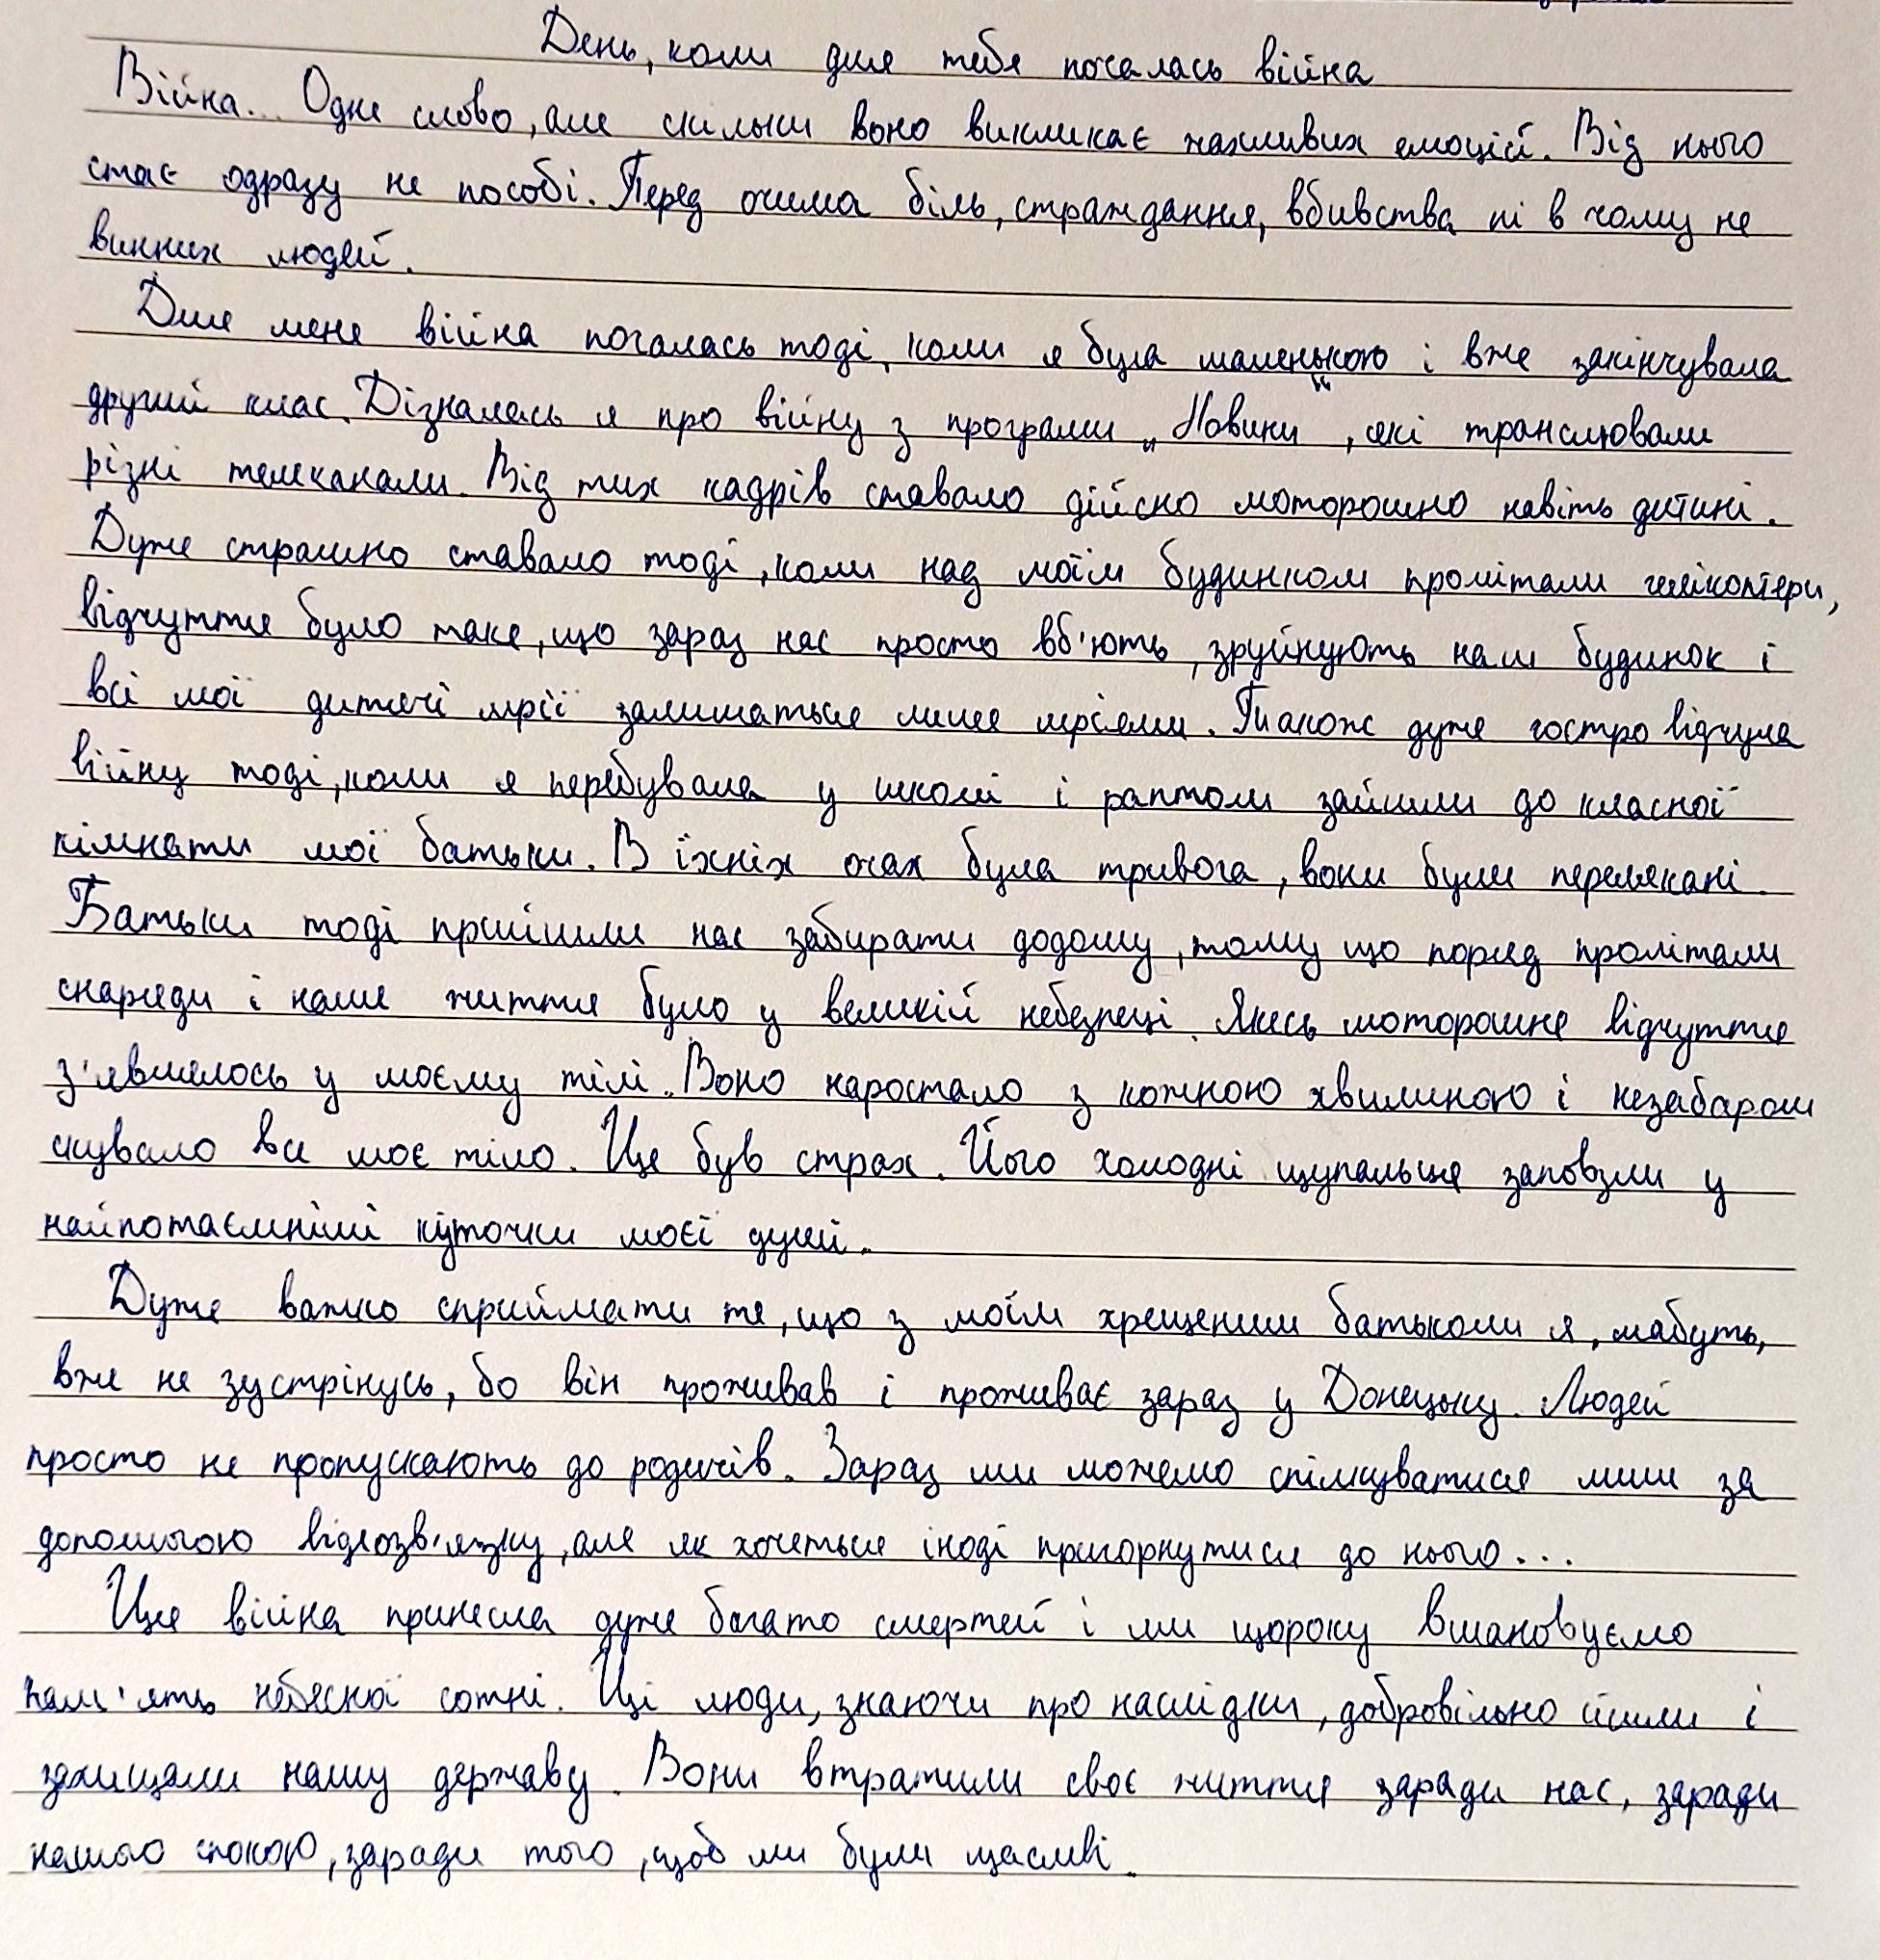 День, коли для тебе почалась війна
Війна... Одне слово, але скільки воно викликає жахливих емоцій. Від нього
стає одразу не пособі. Перед очима біль, страждання, вбивства ні в чому не
винних людей.
Для мене війна почалась тоді, коли я була маленькою і вже закінчувала
другий клас. Дізналась я про війну з програми „Новини“, які транслювали
різні телеканали. Від тих кадрів ставало дійсно моторошно навіть дитині.
Дуже страшно ставало тоді, коли над моїм будинком пролітали гелікоптери,
відчуття було таке, що зараз нас просто вб'ють, зруйнують наш будинок і
всі мої дитячі мрії залишаться лише мріями. Також дуже гостро відчула
війну тоді, коли я перебувала у школі і раптом зайшли до класної
кімнати мої батьки. В їхніх очах була тривога, вони були перелякані.
Батьки тоді прийшли нас забирати додому, тому що поряд пролітали
снаряди і наше життя було у великій небезпеці. Якесь моторошне відчуття
з'явилось у моєму тілі. Воно наростало з кожною хвилиною і незабаром
скувало все моє тіло. Це був страх. Його холодні щупальця заповзли у
найпотаємніші куточки моєї душі.
Дуже важко сприймати те, що з моїм хрещеним батьком я, мабуть,
вже не зустрінусь, бо він проживав і проживає зараз у Донецьку. Людей
просто не пропускають до родичів. Зараз ми можемо спілкуватися лише за
допомогою відеозв'язку, але як хочеться іноді пригорнутися до нього...
Ця війна принесла дуже багато смертей і ми щороку вшановуємо
пам'ять небесної сотні. Ці люди, знаючи про наслідки, добровільно йшли і
захищали нашу державу. Вони втратили своє життя заради нас, заради
нашого спокою, заради того, щоб ми були щасливі.